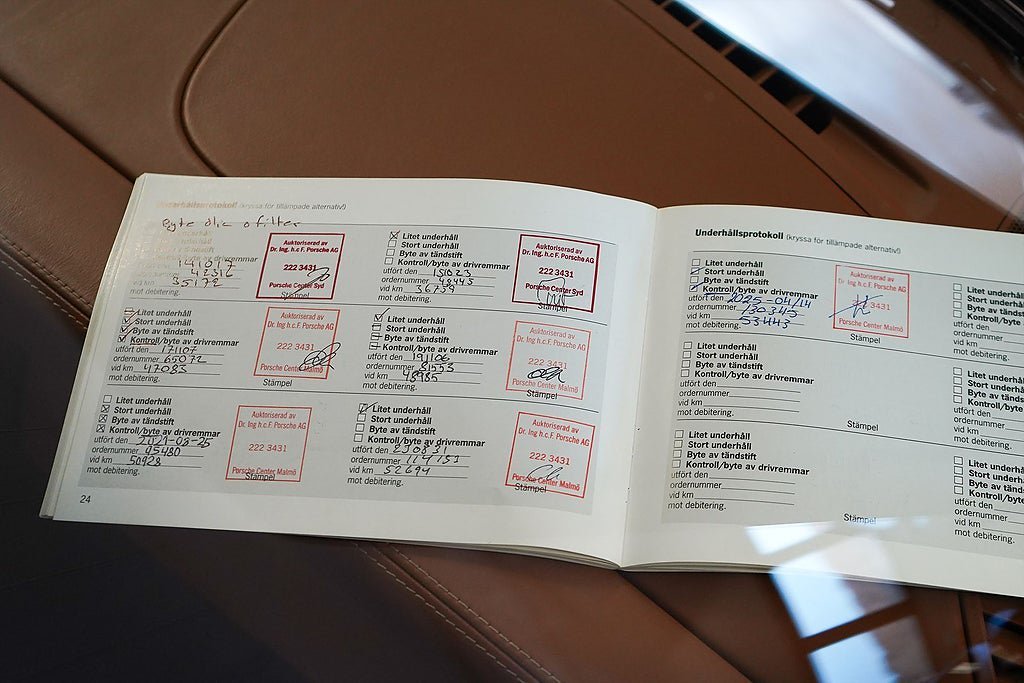 Underhållsprotokoll (kryssa för tillämpade alternativ!)
Byte olja o filter
141017
42316
vid km 35172
mot debitering.
Auktoriserad av
Dr. Ing. h.c.F. Porsche AG
222 3431
Porsche Center Syd
Stämpel
Litet underhåll
Stort underhåll
Byte av tändstift
Kontroll/byte av drivremmar
utfört den 151023
ordernummer 48445
vid km 36759
mot debitering.
Auktoriserad av
Dr. Ing. h.c.F. Porsche AG
222 3431
Porsche Center Syd
Stämpel
Litet underhåll
Stort underhåll
Byte av tändstift
Kontroll/byte av drivremmar
utfört den 171107
ordernummer 65072
vid km 47083
mot debitering.
Auktoriserad av
Dr. Ing h.c.F. Porsche AG
222 3431
Porsche Center Malmö
Stämpel
Litet underhåll
Stort underhåll
Byte av tändstift
Kontroll/byte av drivremmar
utfört den 191106
ordernummer 81553
vid km 48985
mot debitering.
Auktoriserad av
Dr. Ing h.c.F. Porsche AG
222 3431
Porsche Center Malmö
Stämpel
Litet underhåll
Stort underhåll
Byte av tändstift
Kontroll/byte av drivremmar
utfört den 2021-08-25
ordernummer 95480
vid km 50928
mot debitering.
Auktoriserad av
Dr. Ing h.c.F. Porsche AG
222 3431
Porsche Center Malmö
Stämpel
Litet underhåll
Stort underhåll
Byte av tändstift
Kontroll/byte av drivremmar
utfört den 230831
ordernummer
vid km 52694
mot debitering.
Auktoriserad av
Dr. Ing h.c.F. Porsche AG
222 3431
Porsche Center Malmö
Stämpel
24
Underhållsprotokoll (kryssa för tillämpade alternativ!)
Litet underhåll
Stort underhåll
Byte av tändstift
Kontroll/byte av drivremmar
utfört den 2025-04/14
ordernummer 130345
vid km 53443
mot debitering.
Auktoriserad av
Dr. Ing h.c.F. Porsche AG
3431
Porsche Center Malmö
Stämpel
Litet underhåll
Stort underhåll
Byte av tändstift
Kontroll/byte
utfört den
ordernummer
vid km
mot debitering.
Litet underhåll
Stort underhåll
Byte av tändstift
Kontroll/byte av drivremmar
utfört den
ordernummer
vid km
mot debitering.
Stämpel
Litet underhåll
Stort underhåll
Byte av tändstift
Kontroll/byte av
utfört den
ordernummer
vid km
mot debitering.
Litet underhåll
Stort underhåll
Byte av tändstift
Kontroll/byte av drivremmar
utfört den
ordernummer
vid km
mot debitering.
Stämpel
Litet underhåll
Stort underhåll
Byte av tändstift
Kontroll/byte av
utfört den
ordernummer
vid km
mot debitering.